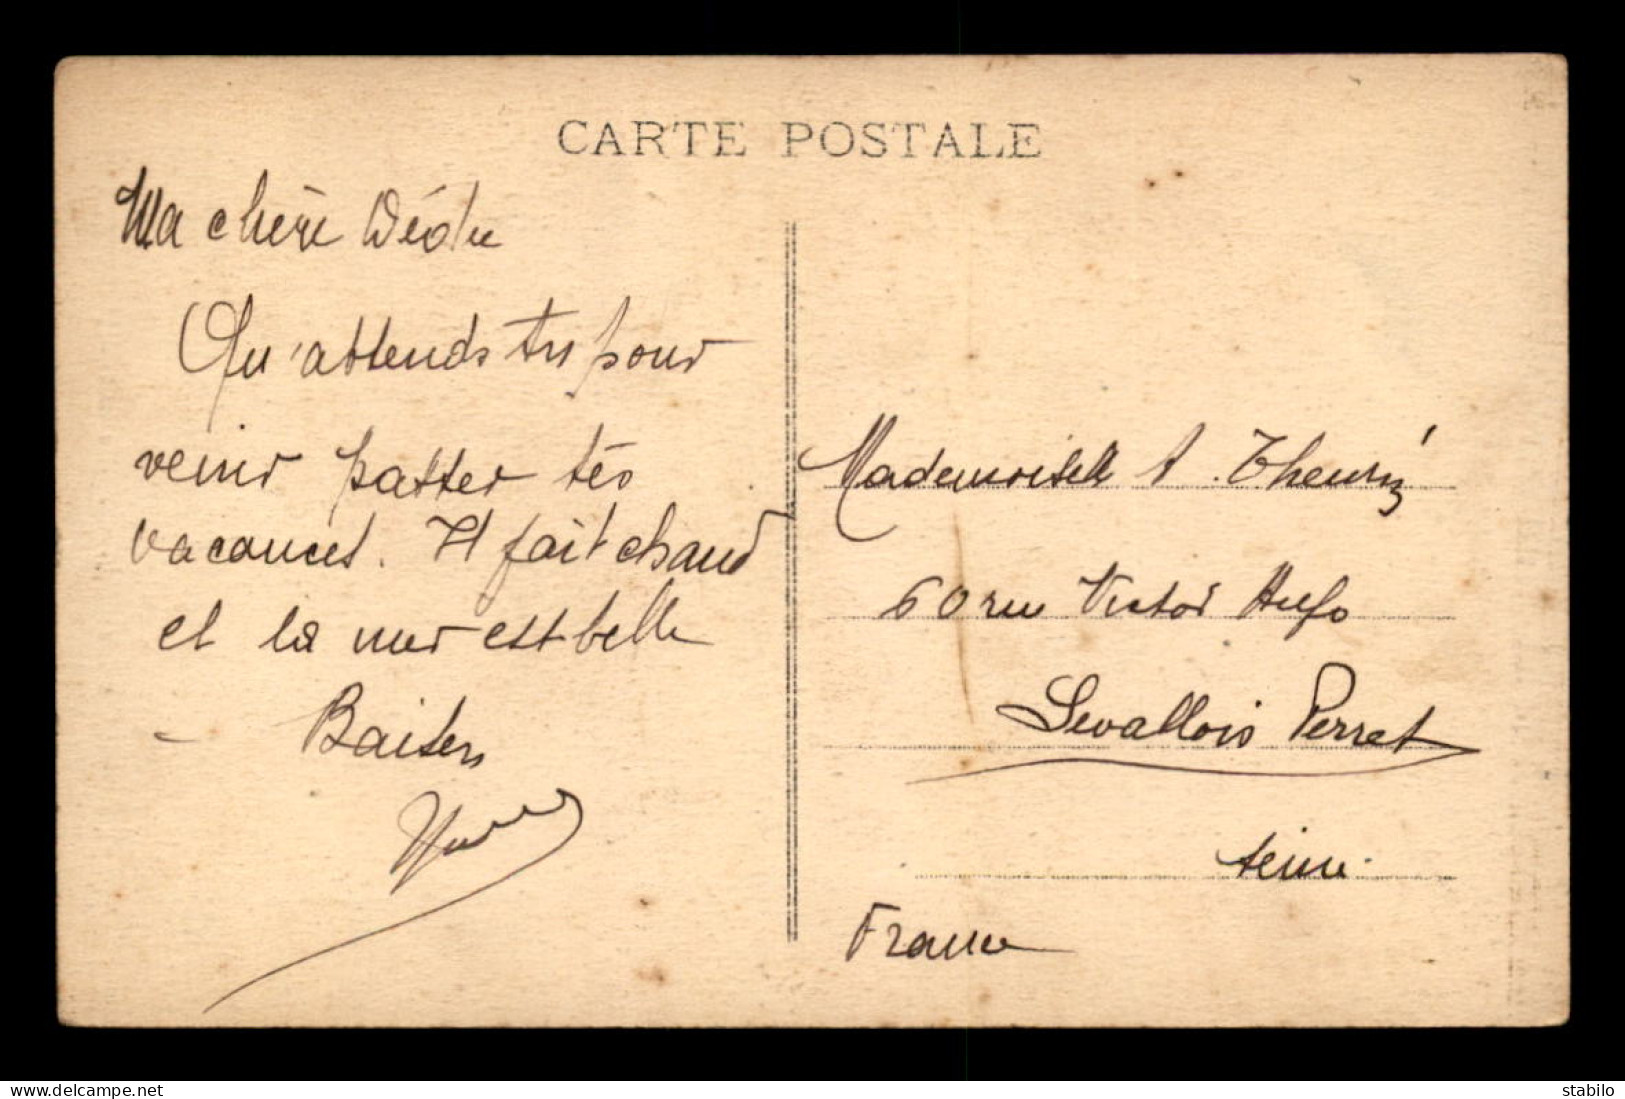 CARTE POSTALE
Ma chère Dédée
Qu'attends tu pour
venir passer tes
vacances. Il fait chaud
et la mer est belle
Baisers
Mademoiselle A.
60 rue Victor Hugo
Levallois Perret
Seine
France
delcampe.net
stabilo